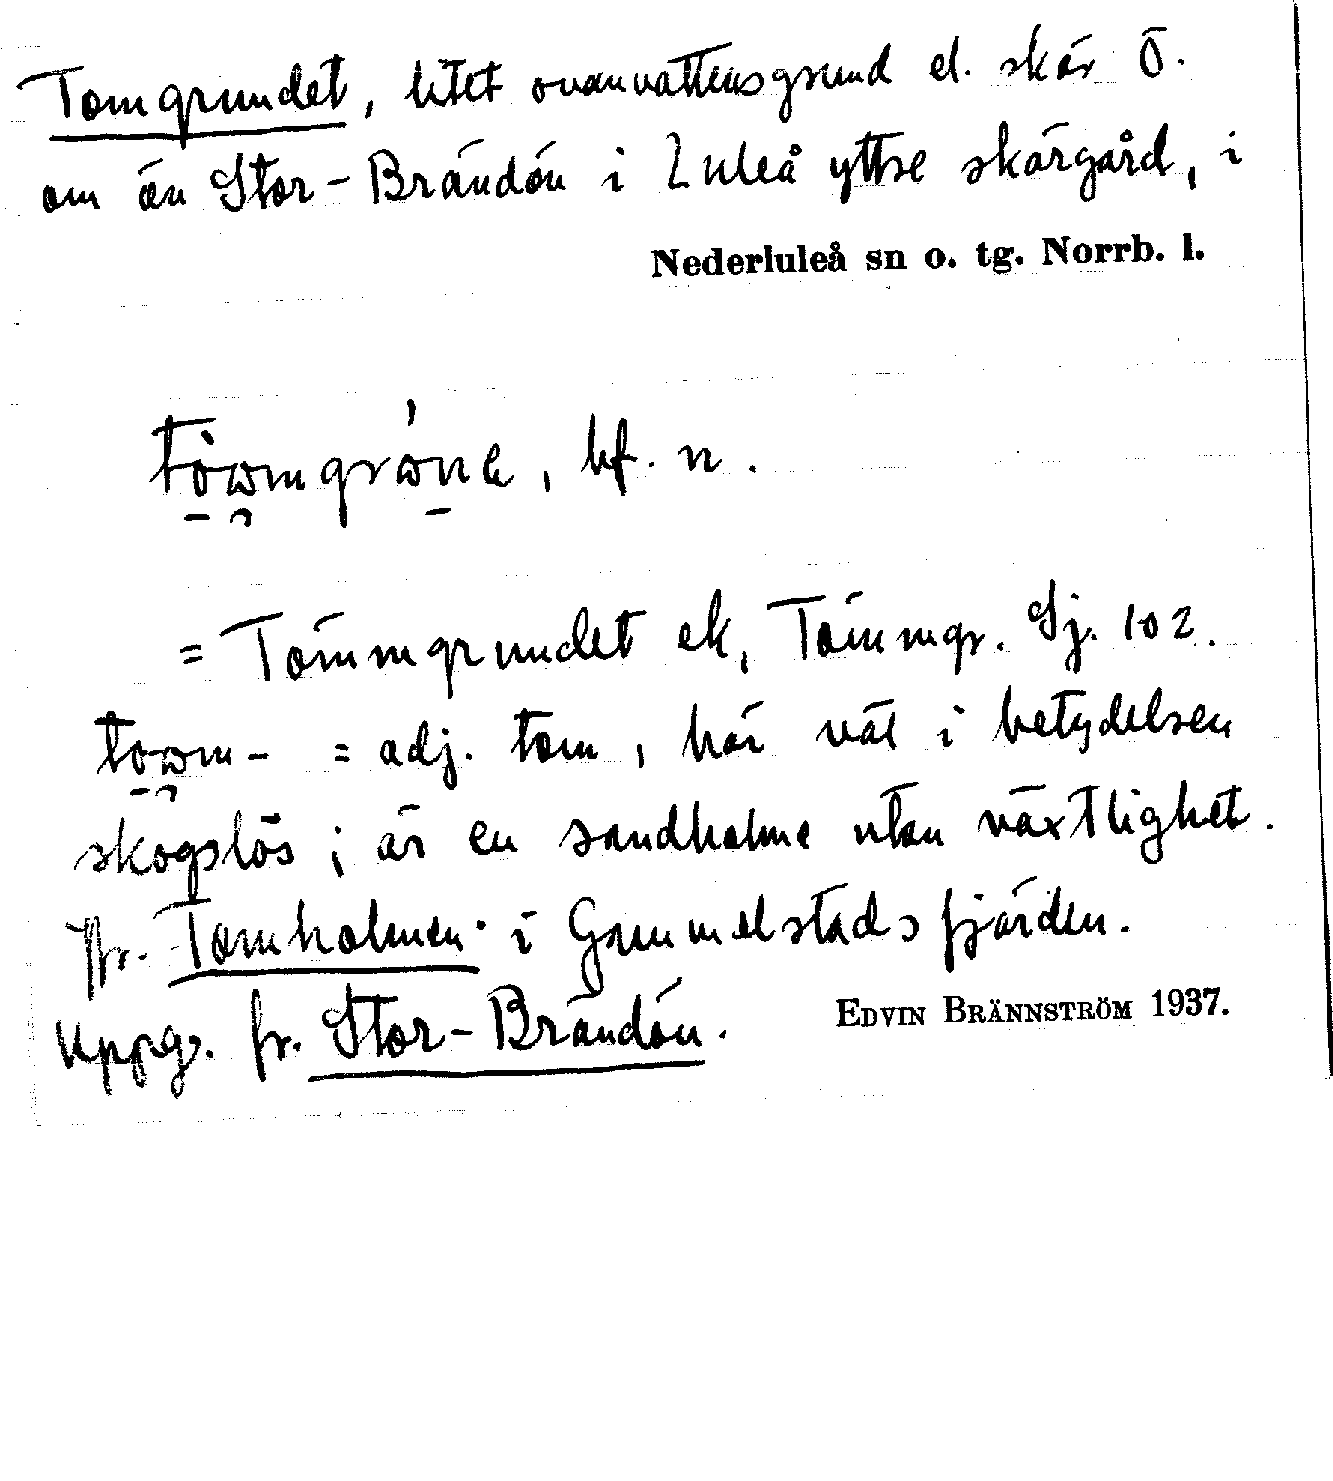 Tomgrundet, litet ovanvattensgrund el. skär Ö.
om ön Stor-Brändön i Luleå yttre skärgård, i
Nederluleå sn o. tg. Norrb. l.
bf. n.
= Tömmgrundet ek, Tömmgr. Sj. 102.
= adj. tom, här väl i betydelsen
skogslös; är en sandholme utan växtlighet.
Jfr. Tomholmen i Gammelstadsfjärden.
Uppg. fr. Stor-Brändön.
EDVIN BRÄNNSTRÖM 1937.